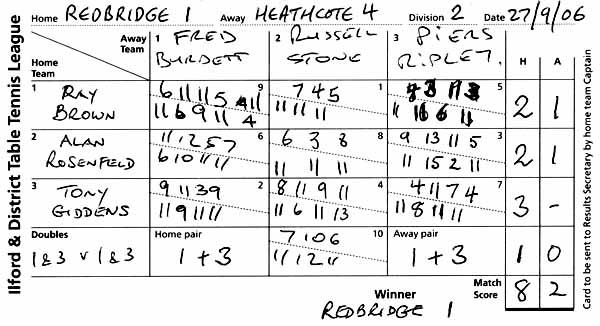 Ilford & District Table Tennis League
Home REDBRIDGE 1 Away HEATHCOTE 4 Division 2 Date 27/9/06
Away Team 1 FRED BURDETT 2 RUSSELL STONE 3 PIERS RIPLEY. H A
Home Team
1 RAY BROWN 9 1 5 2 1
6 11 11 5 7 4 5
11 6 9 11 11 11 11 11
2 ALAN ROSENFELD 6 8 3 2 1
11 12 5 7 6 3 8 9 13 11 5
6 10 11 11 11 11 11 11 15 2 11
3 TONY GIDDENS 2 4 7 3 -
9 11 3 9 8 11 9 11 4 11 7 4
11 9 11 11 11 6 11 13 11 8 11 11
Doubles Home pair 10 Away pair
1 & 3 v 1 & 3 1 + 3 7 10 6 1 + 3 1 0
11 12 11
Winner Match Score 8 2
REDBRIDGE 1
Card to be sent to Results Secretary by home team Captain